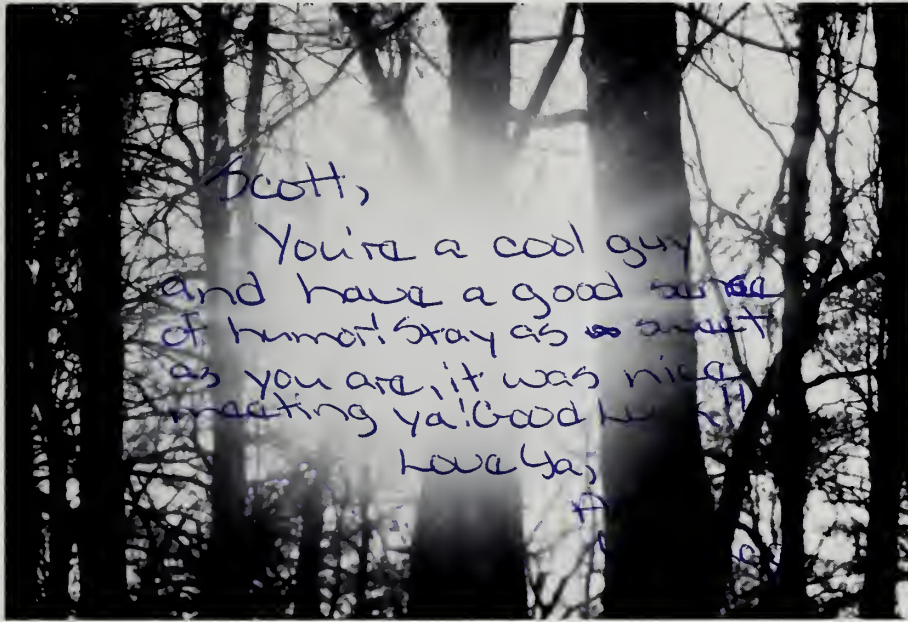 Scott,
You're a cool guy
and have a good sense
of humor! Stay as sweet
as you are, it was nice
meeting ya! Good Luck!!
Love Ya,